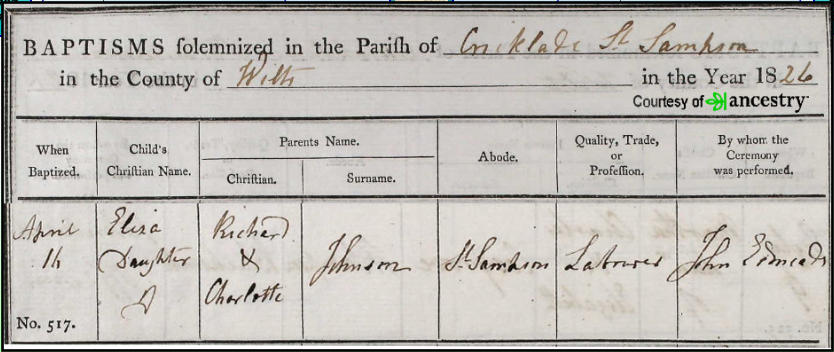 BAPTISMS ſolemnized in the Pariſh of Cricklade St. Sampson
in the County of Wilts in the Year 1826
Courtesy of ancestry
When Baptized.
Child's Chriſtian Name.
Parents Name.
Chriſtian.
Surname.
Abode.
Quality, Trade, or Profeſſion.
By whom the Ceremony was performed.
April
Eliza
Daughter
of
Richard
&
Charlotte
Johnson
St. Sampson
Labourer
John Edmeads
No. 517.